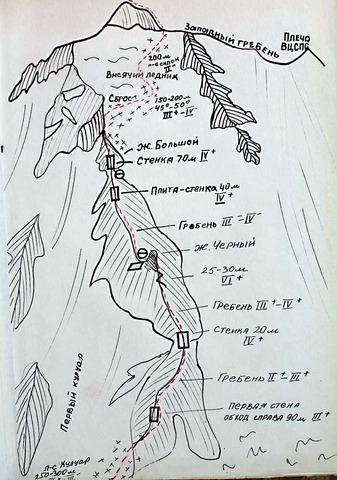 Западный гребень
Плечо
ВЦСПС
200м
Висячий ледник
Сброс
150-200м
45°-50°
III⁺-IV
Ж. Большой
Стенка 70м IV⁺
Плита-стенка 40м
IV⁺
Гребень III⁻-IV⁻
Ж. Черный
25-30м
VI⁺
Гребень III⁺-IV⁺
Стенка 20м
IV⁺
Гребень II⁺-III⁺
Первая стена
обход справа 90м III⁺
Первый кулуар
Л-С Кулуар
250-300м